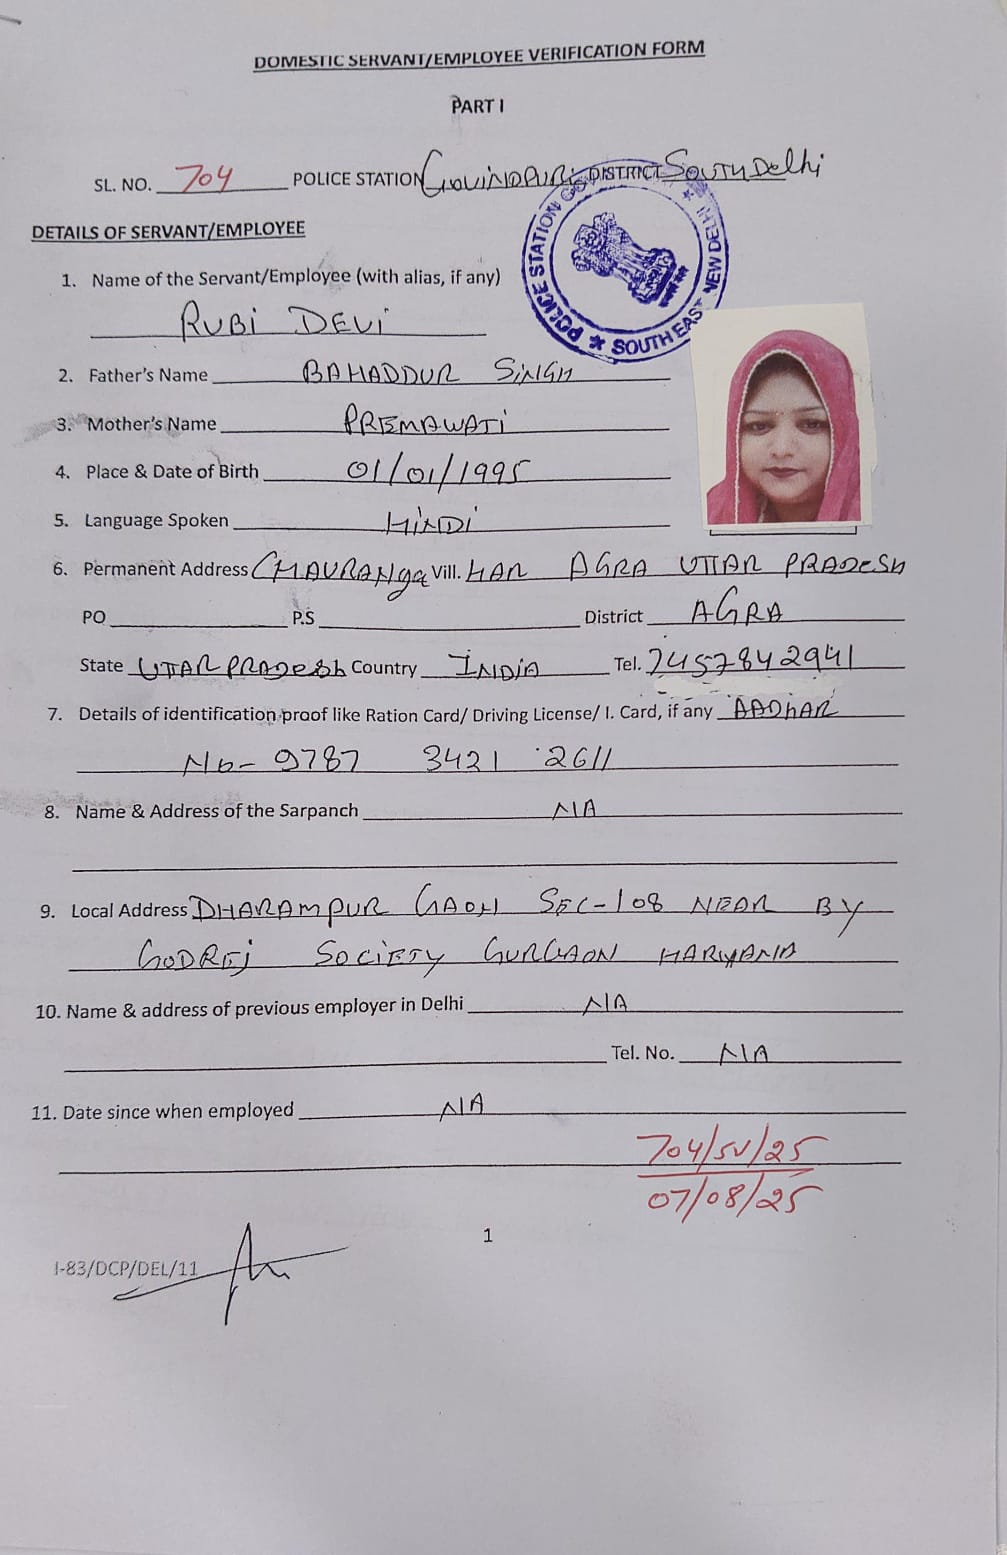 DOMESTIC SERVANT/EMPLOYEE VERIFICATION FORM
PART I
SL. NO. 704 POLICE STATION GOVINDPURI DISTRICT SOUTH Delhi
POLICE STATION GO
SOUTH EAST NEW DELHI
DETAILS OF SERVANT/EMPLOYEE
1. Name of the Servant/Employee (with alias, if any)
RUBI DEVI
2. Father's Name BAHADDUR SINGH
3. Mother's Name PREMAWATI
4. Place & Date of Birth 01/01/1995
5. Language Spoken HINDI
6. Permanent Address CHAURANga Vill. HAR AGRA UTTAR PRADESH
PO P.S District AGRA
State UTTAR PRADESH Country INDIA Tel. 7457842941
7. Details of identification proof like Ration Card/ Driving License/ I. Card, if any AADHAR
No- 9787 3421 2611
8. Name & Address of the Sarpanch N/A
9. Local Address DHARAMPUR GAON SEC-108 NEAR BY
GODREJ SOCIETY GURGAON HARYANA
10. Name & address of previous employer in Delhi N/A
Tel. No. N/A
11. Date since when employed N/A
704/SV/25
07/08/25
1
I-83/DCP/DEL/11